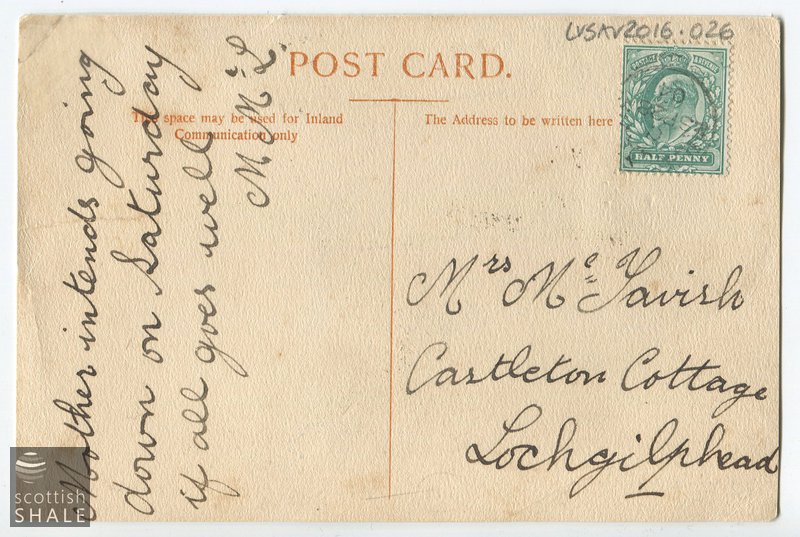 LVSAV2016.026
POST CARD.
This space may be used for Inland
Communication only
The Address to be written here
POSTAGE & REVENUE
HALF PENNY
Mother intends going
down on Saturday
if all goes well
M Mc L
Mrs Mc Tavish
Castleton Cottage
Lochgilphead
scottish
SHALE